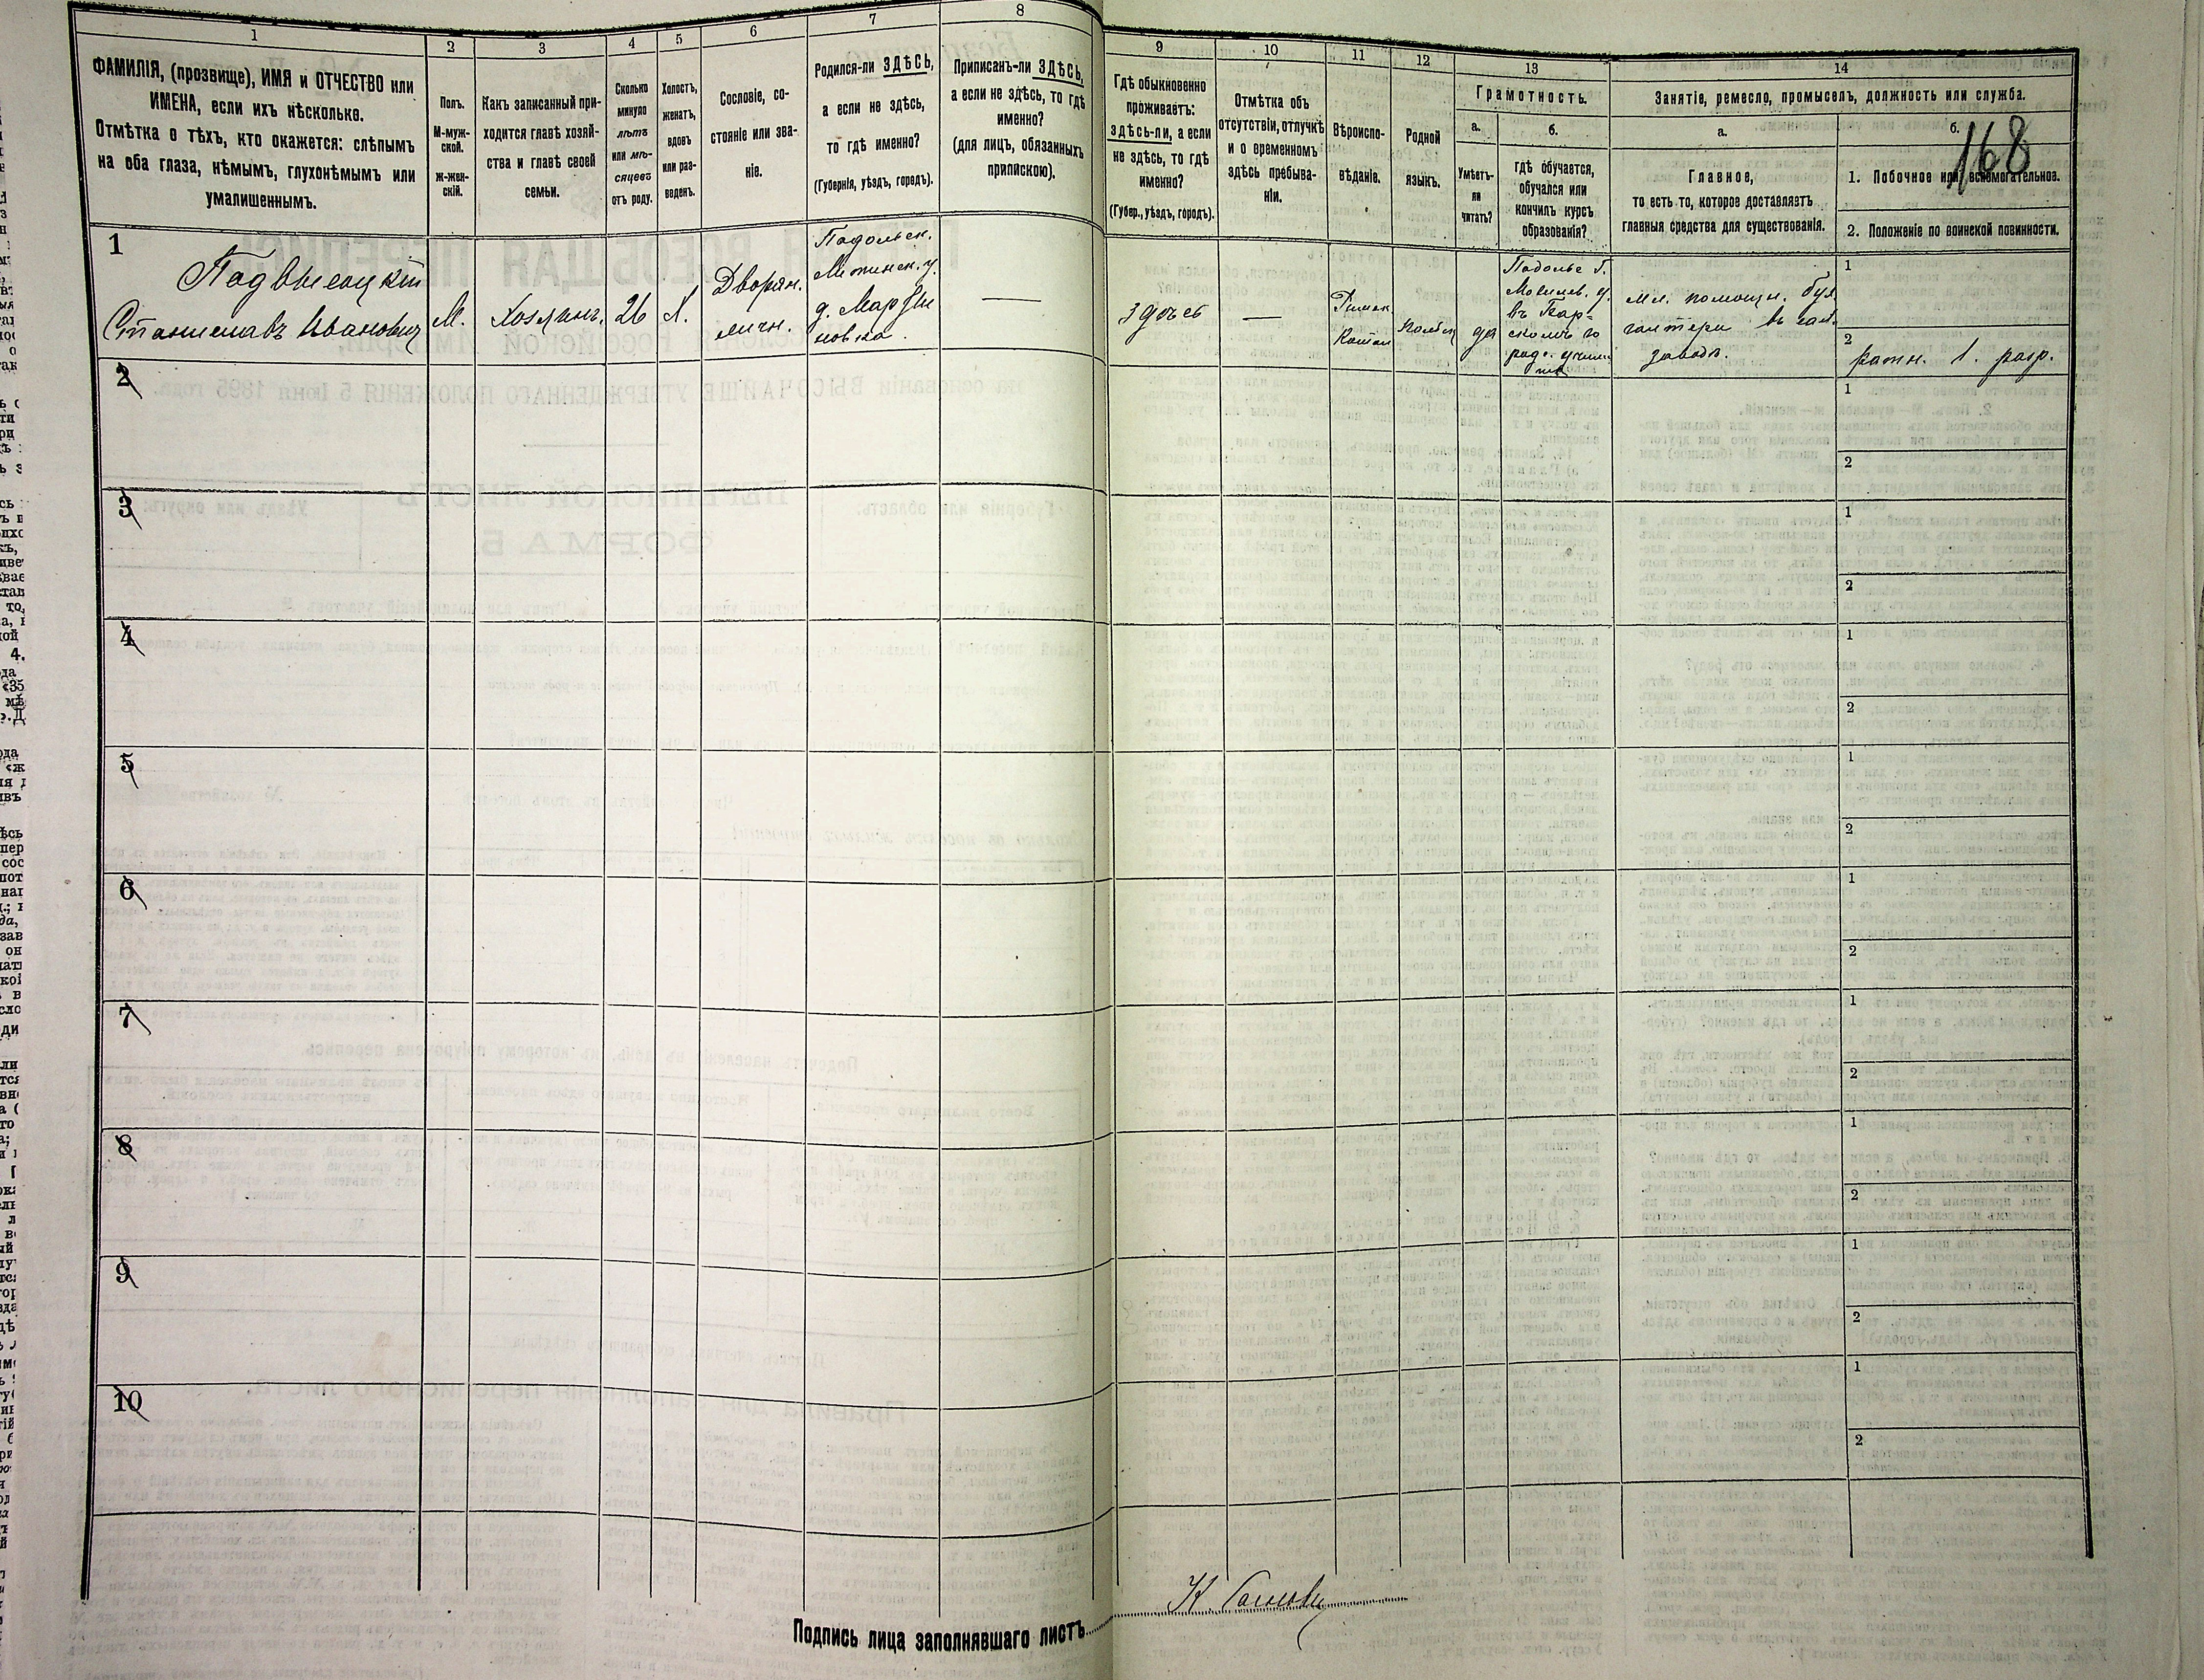 1
2
3
4
5
6
7
8
9
10
11
12
13
14
ФАМИЛІЯ, (прозвище), ИМЯ и ОТЧЕСТВО или
ИМЕНА, если ихъ нѣсколько.
Отмѣтка о тѣхъ, кто окажется: слѣпымъ
на оба глаза, нѣмымъ, глухонѣмымъ или
умалишеннымъ.
Полъ.
М-муж-
ской.
ж-жен-
скій.
Какъ записанный при-
ходится главѣ хозяй-
ства и главѣ своей
семьи.
Сколько
минуло
лѣтъ
или мѣ-
сяцевъ
отъ роду.
Холостъ,
женатъ,
вдовъ
или раз-
веденъ.
Сословіе, со-
стояніе или зва-
ніе.
Родился-ли ЗДѢСЬ,
а если не здѣсь,
то гдѣ именно?
(Губернія, уѣздъ, городъ).
Приписанъ-ли ЗДѢСЬ,
а если не здѣсь, то гдѣ
именно?
(для лицъ, обязанныхъ
припискою).
Гдѣ обыкновенно
проживаетъ:
здѣсь-ли, а если
не здѣсь, то гдѣ
именно?
(Губер., уѣздъ, городъ).
Отмѣтка объ
отсутствіи, отлучкѣ
и о временномъ
здѣсь пребыва-
ніи.
Вѣроиспо-
вѣданіе.
Родной
языкъ.
Грамотность.
а.
Умѣетъ-
ли
читать?
б.
гдѣ обучается,
обучался или
кончилъ курсъ
образованія?
Занятіе, ремесло, промыселъ, должность или служба.
а.
Главное,
то есть то, которое доставляетъ
главныя средства для существованія.
б.
168
1. Побочное или вспомогательное.
2. Положеніе по воинской повинности.
1
Подвысоцкій
Станиславъ Ивановичъ
М.
Хозяинъ.
26
Х.
Дворян.
личн.
Подольск.
д. Марьяновка.
—
здѣсь
—
Римск
Катол
да
Подольс. г.
Могилев. у.
мл. помощн. бух
галтера
заводѣ.
1
2
ратн. 1. разр.
2
1
2
3
1
2
4
1
2
5
1
2
6
1
2
7
1
2
8
1
2
9
1
2
10
1
2
Подпись лица заполнявшаго листъ